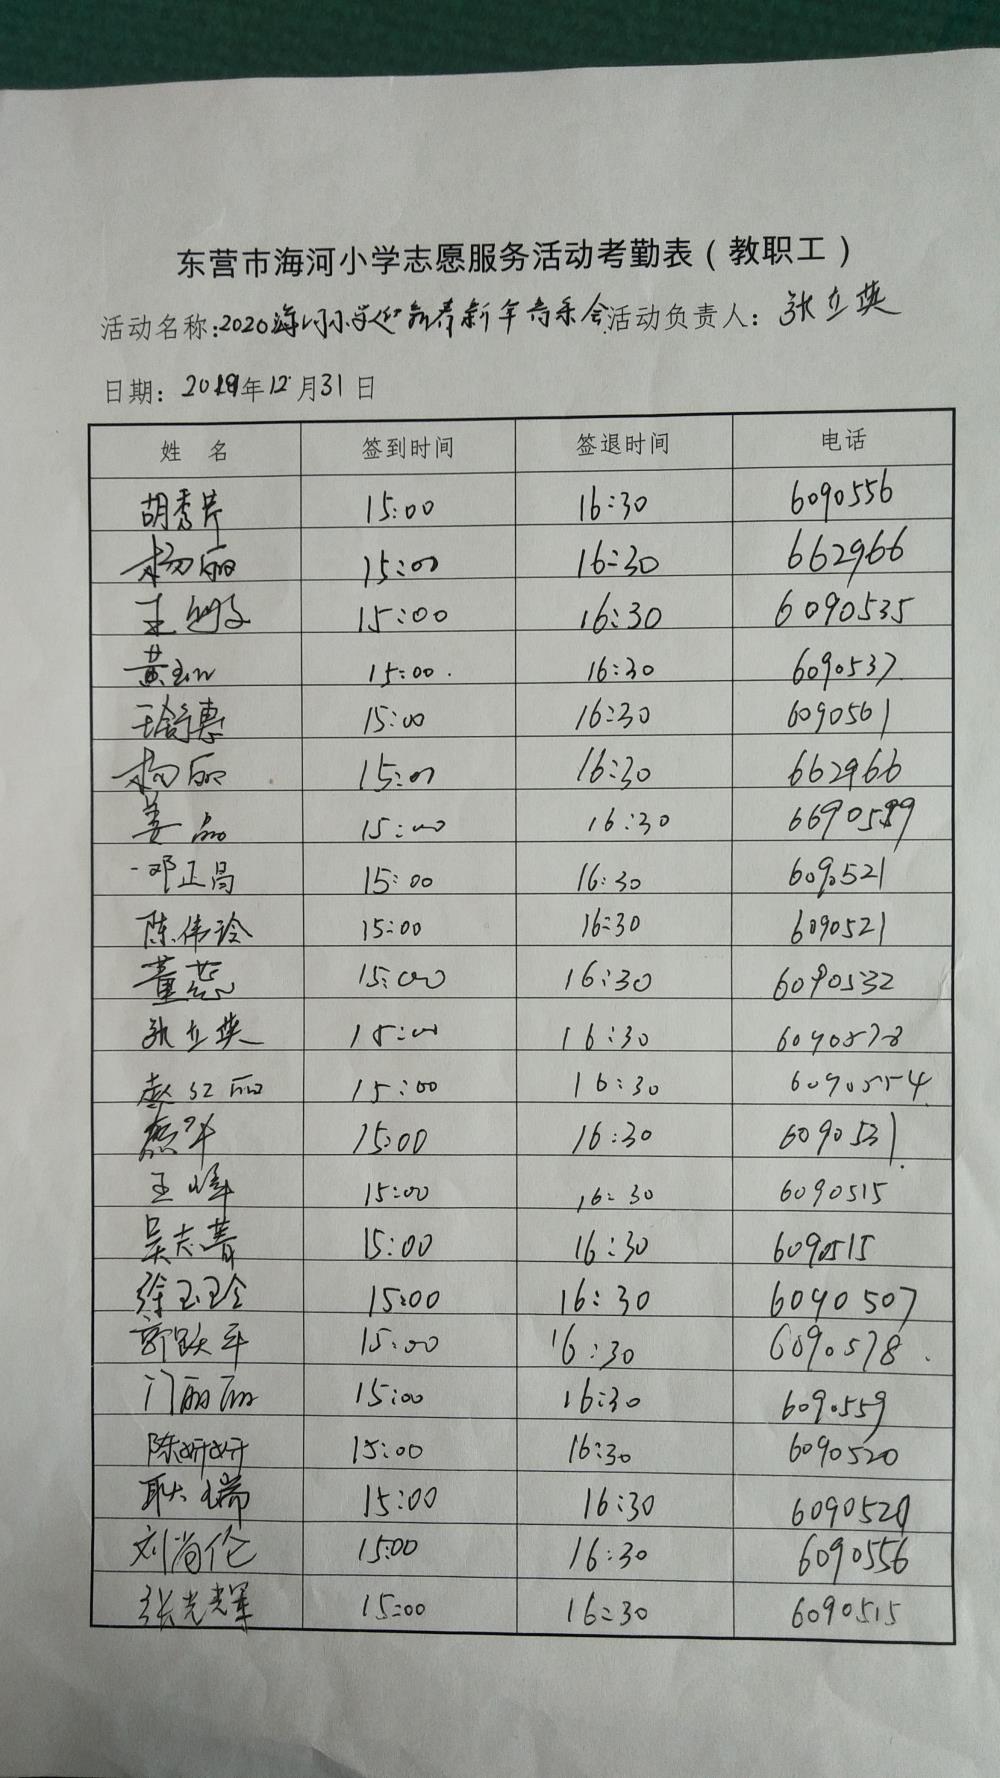 东营市海河小学志愿服务活动考勤表（教职工）
活动名称:2020海河小学迎新春新年音乐会 活动负责人：张立英
日期：2019年12月31日
姓 名 签到时间 签退时间 电话
胡秀芹 15:00 16:30 6090556
杨丽 15:00 16:30 662966
王 15:00 16:30 6090535
黄 15:00. 16:30 6090537
王舒惠 15:00 16:30 6090561
杨丽 15:00 16:30 662966
姜磊 15:00 16:30
邓正昌 15:00 16:30 6090521
陈伟玲 15:00 16:30 6090521
董蕊 15:00 16:30 6090532
张立英 15:00 16:30 6090578
赵红丽 15:00 16:30 6090554
15:00 16:30 6090531
王峰 15:00 16:30 6090515
吴志菁 15:00 16:30 6090515
徐玉玲 15:00 16:30 6090507
郭跃平 15:00 16:30 6090578
门丽丽 15:00 16:30 6090559
陈妍妍 15:00 16:30 6090520
耿瑞 15:00 16:30
刘尚伦 15:00 16:30 6090556
张光辉 15:00 16:30 6090515